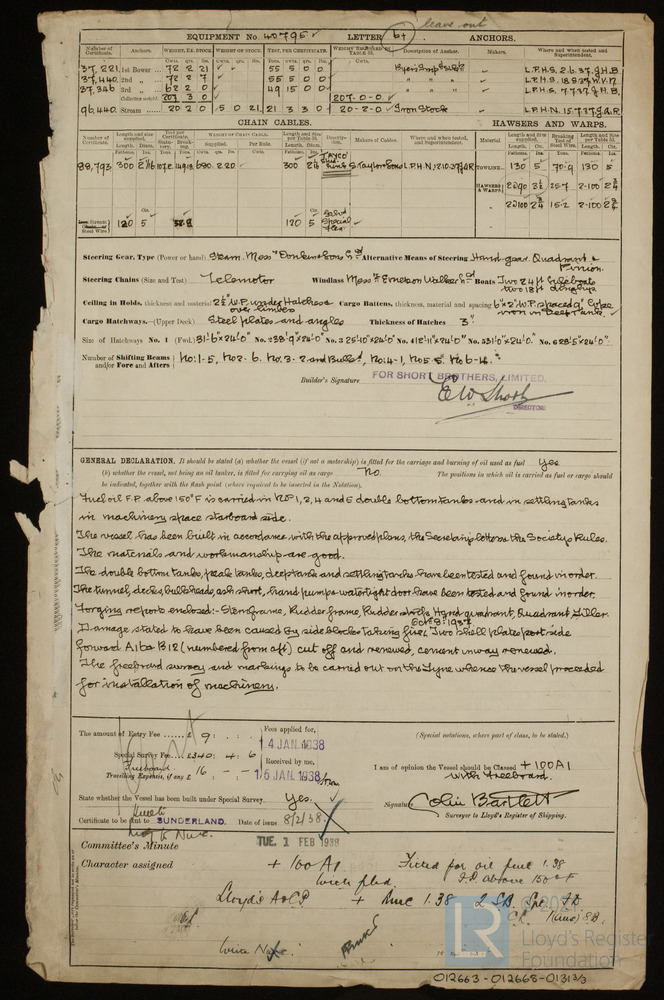 leave out
EQUIPMENT No. 40795 LETTER b+ ANCHORS.
Number of Certificate. Anchors. WEIGHT, EX. STOCK. WEIGHT OF STOCK. TEST, PER CERTIFICATE. Description of Anchor. Makers. Where and when tested and Superintendent.
37,221 1st Bower 72 2 21 55 5 0 0 L.P.H.S. 2.6.37 J.H.B
37,440 2nd 72 2 7 55 5 0 0
37,346 3rd 62 2 0 49 15 0 0 L.P.H.S. 7.7.37 J.H.B
Collective weight 207 3 0 207-0-0
96,440 Stream 20 2 0 5 0 21 21 3 3 0 20-2-0 Iron Stock L.P.H.N. 15.7.37 J.A.R
CHAIN CABLES. HAWSERS AND WARPS.
Number of Certificate. Length and size supplied. Test per Certificate. WEIGHT OF CHAIN CABLE. Length and Size per Table 53. Description. Makers of Cables. Where and when tested, and Superintendent. Material. Length and Size supplied. Breaking Test of Steel Wire. Length and Size per Table 53.
88,793 300 2 11/16 680.2.20 300 Tayco S. Taylor & Sons L.P.H.N. 12.10.37 J.A.R TOWLINE 130 5 70.9 130 5
HAWSERS & WARPS 2@90 3¼ 25.7 2-100 2¾
2@100 2¾ 15.2 2-100 2¾
Stream Chain or Steel Wire 120 5 120 5 Galvd Special Flex
Steering Gear, Type (Power or hand) Steam. Messrs Donkin & Sons Ld Alternative Means of Steering Hand gear. Quadrant & Pinion.
Steering Chains (Size and Test) Telemotor Windlass Messrs Emerson Walker Ld Boats Two 24ft lifeboats two 18ft dinghys
Ceiling in Holds, thickness and material 2½" W.P. under Hatches & over limbers Cargo Battens, thickness, material and spacing 6"x2" W.P. spaced 9" & pipe iron in Deep tanks.
Cargo Hatchways.—(Upper Deck) Steel plates and angles Thickness of Hatches 3"
Size of Hatchways No. 1 (Fwd.) 31'6"x24'0" No. 2 38'9"x24'0" No. 3 25'10"x24'0" No. 4 12'11"x24'0" No. 5 31'0"x24'0" No. 6 28'5"x24'0"
Number of Shifting Beams and/or Fore and Afters No: 1-5, No 2-6, No. 3-2 and Bulkd, No: 4-1, No 5-5, No 6-4
Builder's Signature FOR SHORT BROTHERS, LIMITED.
E W Short
DIRECTOR
GENERAL DECLARATION. It should be stated (a) whether the vessel (if not a motorship) is fitted for the carriage and burning of oil used as fuel Yes
(b) whether the vessel, not being an oil tanker, is fitted for carrying oil as cargo No. The positions in which oil is carried as fuel or cargo should
be indicated, together with the flash point (where required to be inserted in the Notation).
Fuel oil F.P. above 150°F is carried in Nos 1, 2, 4 and 5 double bottom tanks and in settling tanks
in machinery space starboard side.
The vessel has been built in accordance with the approved plans, the Secretary's letters & the Society's Rules.
The materials and workmanship are good.
The double bottom tanks, peak tanks, deep tanks and settling tanks have been tested and found in order.
The tunnel, decks, bulkheads, ash shoot, hand pumps & watertight door have been tested and found in order.
Forging reports enclosed:- Sternframe, Rudder frame, Rudder stock, Hand quadrant, Quadrant, Tiller.
Damage stated to have been caused by side blocks taking fire, Two shell plates port side
forward A1 & B12 (numbered from aft) cut off and renewed, cement inway renewed.
The freeboard survey and markings to be carried out on the Tyne whence the vessel proceeded
for installation of machinery.
The amount of Entry Fee £ 9 : - : - Fees applied for, (Special notations, where part of class, to be stated.)
14 JAN 1938
Special Survey Fee £ 340 : 4 : 6 Received by me,
Freeboard 16 - - 15 JAN 1938
Travelling Expenses, if any £
I am of opinion the Vessel should be Classed +100A1
with freeboard.
State whether the Vessel has been built under Special Survey. Yes. Signature Colin Bartlett
Surveyor to Lloyd's Register of Shipping.
Certificate to be sent to SUNDERLAND. Date of issue 8/2/38
Committee's Minute TUE. 1 FEB 1938
Character assigned +100A1 Fitted for oil fuel 1.38
with fbd. F.P. above 150°F
Lloyd's A&CP + LMC 1.38 2 SB Spt FD
CL
Write Nce
Lloyd's Register
Foundation
012663-012668-0131 3/3